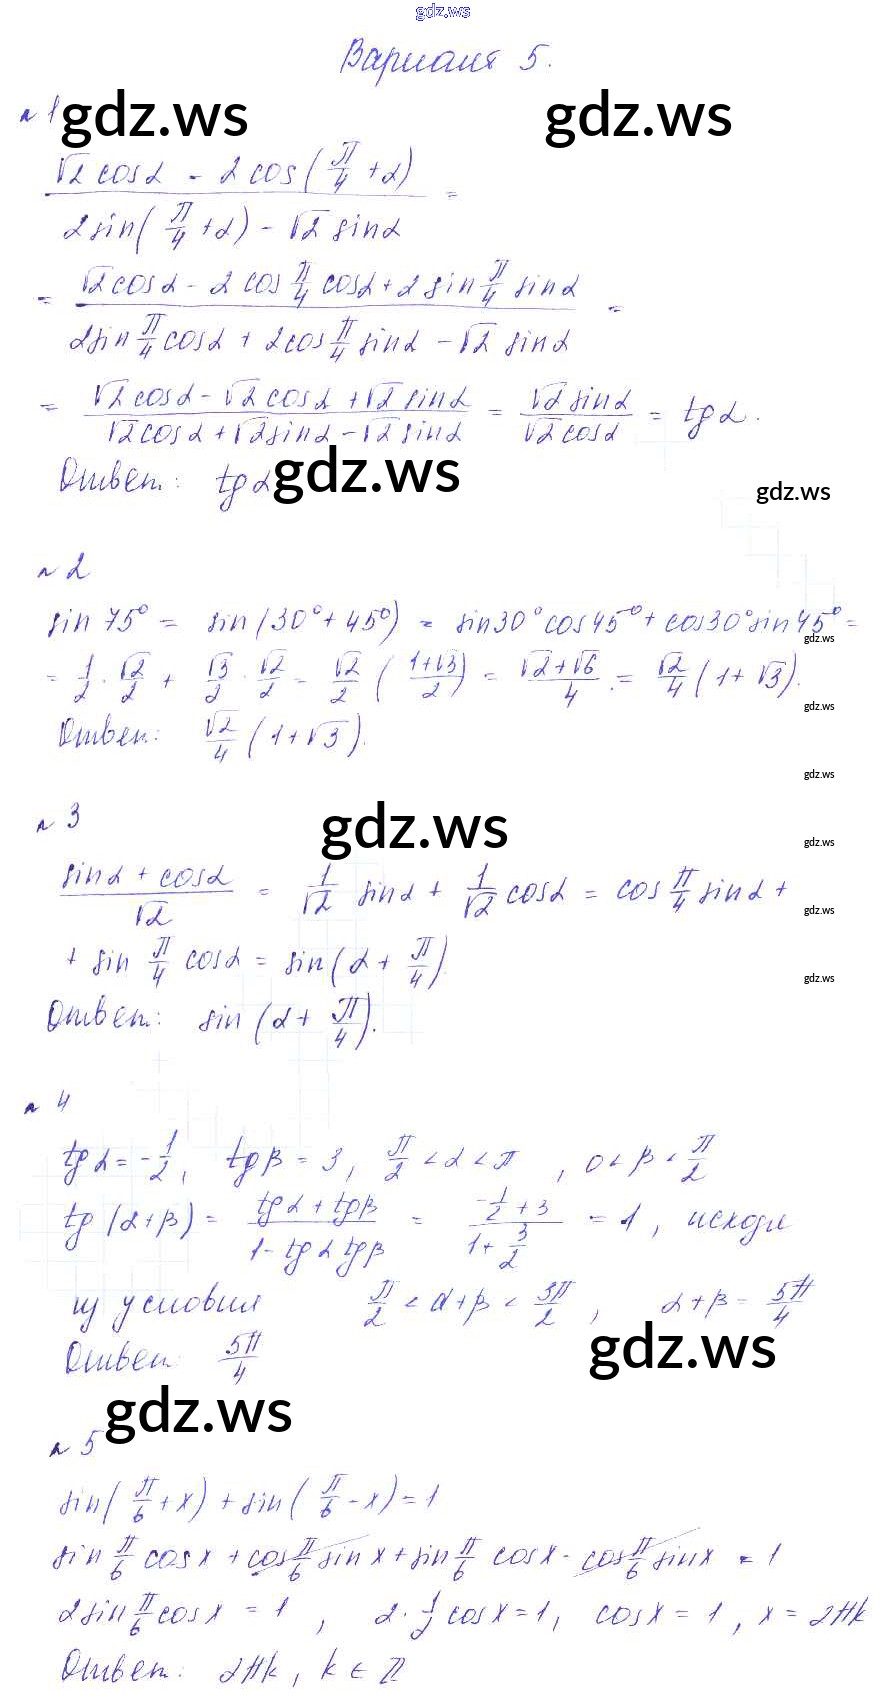 gdz.ws
Вариант 5.
№ 1
gdz.ws gdz.ws
(√2 cosα - 2 cos(π/4 + α)) / (2 sin(π/4 + α) - √2 sinα) =
= (√2 cosα - 2 cos π/4 cosα + 2 sin π/4 sinα) / (2 sin π/4 cosα + 2 cos π/4 sinα - √2 sinα) =
= (√2 cosα - √2 cosα + √2 sinα) / (√2 cosα + √2 sinα - √2 sinα) = √2 sinα / √2 cosα = tgα.
Ответ: tgα
gdz.ws
gdz.ws
№ 2
sin 75° = sin(30° + 45°) = sin30° cos45° + cos30° sin45° =
= 1/2 · √2/2 + √3/2 · √2/2 = √2/2 ((1+√3)/2) = (√2+√6)/4 = √2/4 (1+√3).
gdz.ws
Ответ: √2/4 (1+√3).
gdz.ws
№ 3
gdz.ws
gdz.ws
(sinα + cosα)/√2 = 1/√2 sinα + 1/√2 cosα = cos π/4 sinα +
gdz.ws
+ sin π/4 cosα = sin(α + π/4).
gdz.ws
Ответ: sin(α + π/4).
№ 4
tgα = -1/2, tgβ = 3, π/2 < α < π, 0 < β < π/2
tg(α+β) = (tgα + tgβ)/(1 - tgα tgβ) = (-1/2 + 3)/(1 + 3/2) = 1, исходя
из условия π/2 < α+β < 3π/2, α+β = 5π/4
gdz.ws
Ответ: 5π/4
gdz.ws
№ 5
sin(π/6 + x) + sin(π/6 - x) = 1
sin π/6 cos x + cos π/6 sin x + sin π/6 cos x - cos π/6 sin x = 1
2 sin π/6 cos x = 1, 2 · 1/2 cos x = 1, cos x = 1, x = 2πk
Ответ: 2πk, k ∈ Z